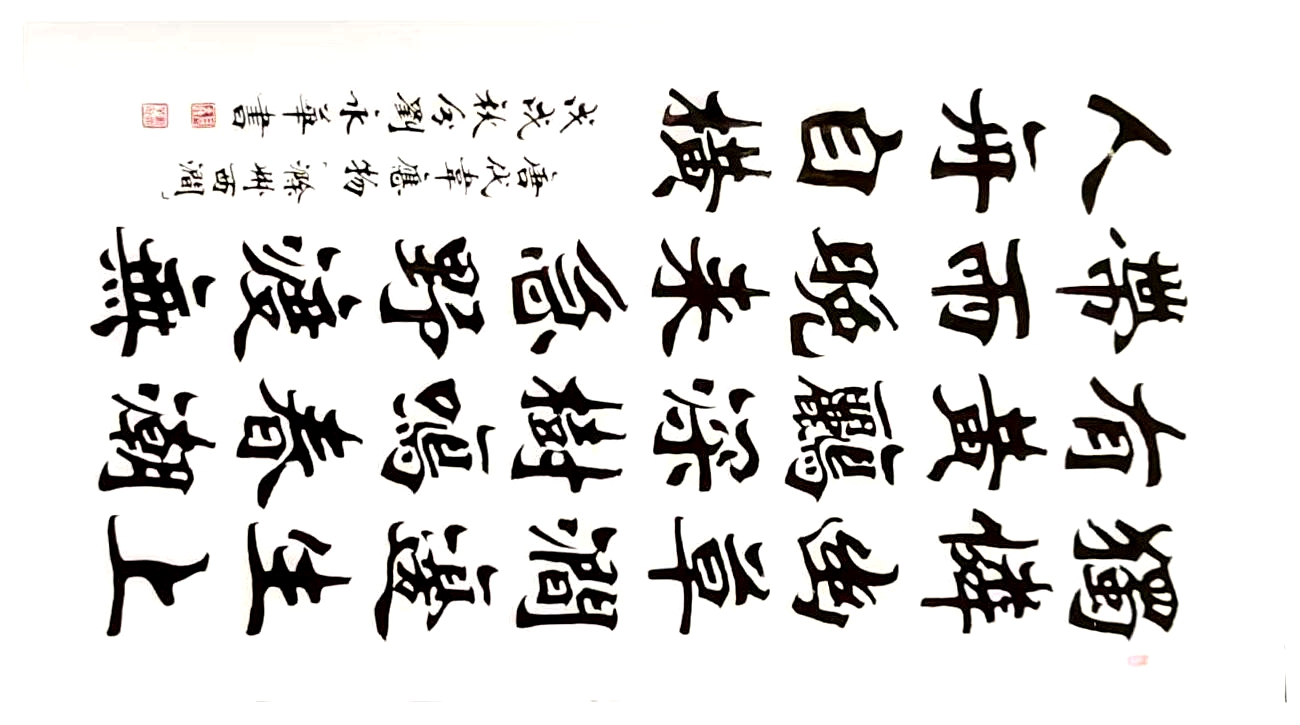 獨憐幽草澗邊生上
有黃鸝深樹鳴春潮
帶雨晚来急野渡無
人舟自橫
唐代韋應物「滁州西澗」
戊戌秋分劉永華書